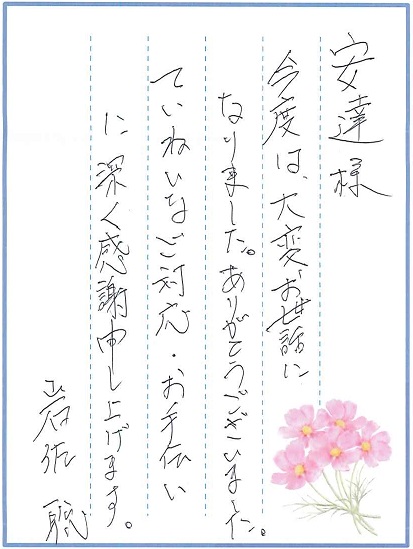 安達様
今度は、大変お世話に
なりました。ありがとうございました。
ていねいなご対応・お手伝い
に深く感謝申し上げます。
岩佐 聡